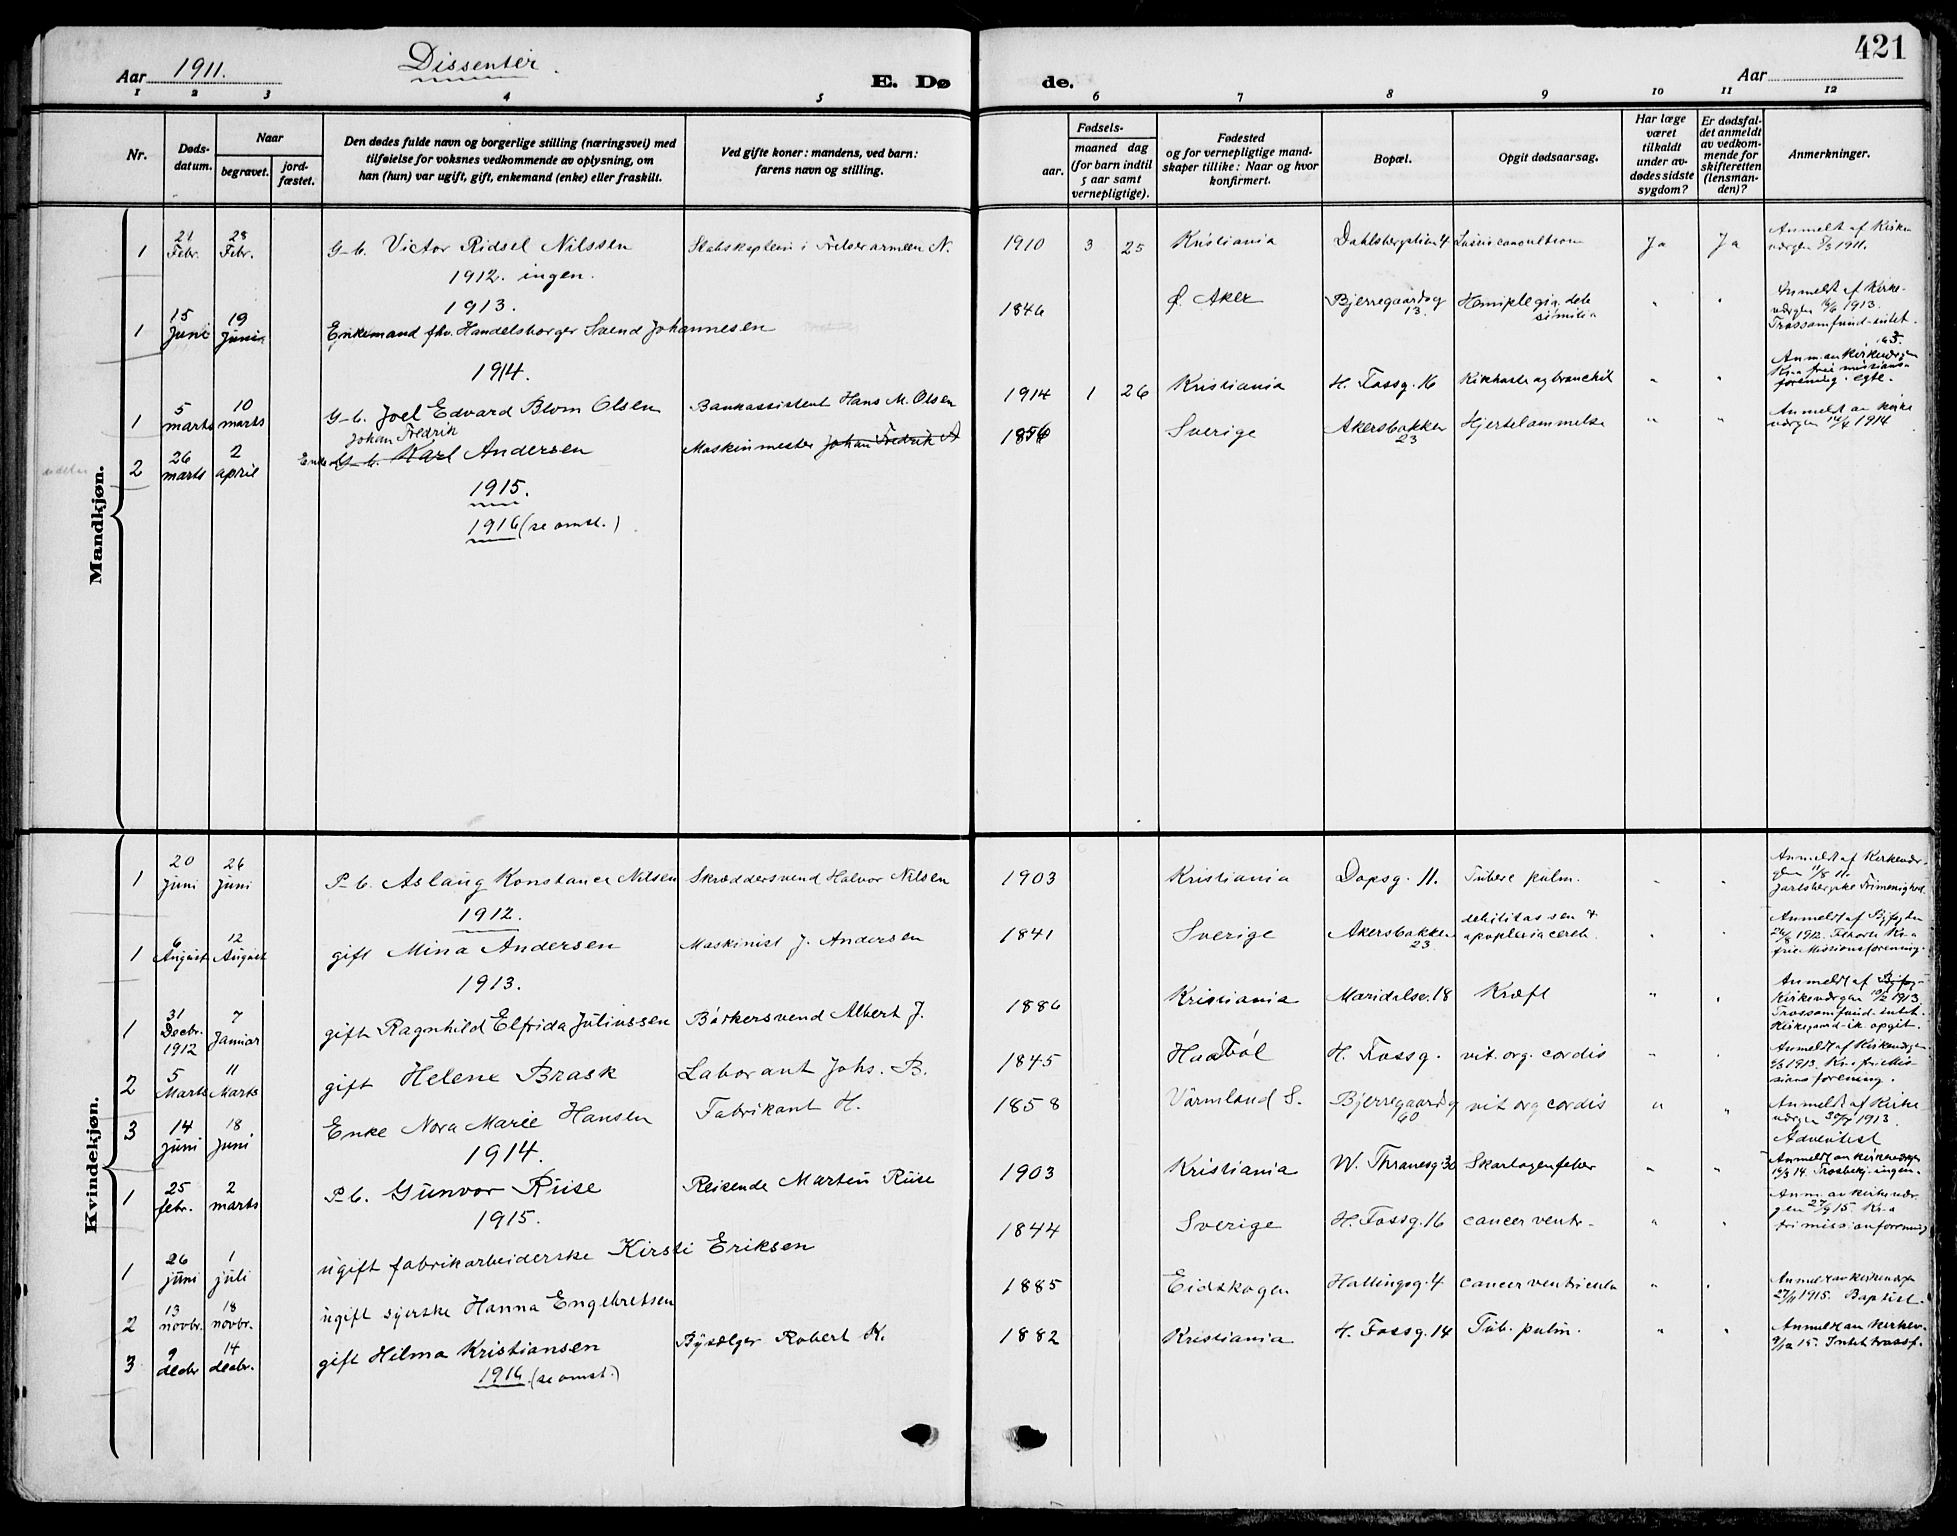 421
Aar 1911.
Dissenter.
E. Døde.
Aar
1 2 3 4 5 6 7 8 9 10 11 12
Nr.
Døds-datum.
Naar
begravet.
jord-fæstet.
Den dødes fulde navn og borgerlige stilling (næringsvei) med
tilføielse for voksnes vedkommende av oplysning, om
han (hun) var ugift, gift, enkemand (enke) eller fraskilt.
Ved gifte koner: mandens, ved barn:
farens navn og stilling.
Fødsels-
aar.
maaned dag
(for barn indtil
5 aar samt
vernepligtige).
Fødested
og for vernepligtige mand-
skaper tillike: Naar og hvor
konfirmert.
Bopæl.
Opgit dødsaarsag.
Har læge
været
tilkaldt
under av-
dødes sidste
sygdom?
Er dødsfal-
det anmeldt
av vedkom-
mende for
skifteretten
(lensman-
den)?
Anmerkninger.
Mandkjøn.
1 21 Febr. 28 Febr. G-b. Victor Ridsel Nilssen Stabskaptein i Frelsesarmeen N. 1910 3 25 Kristiania Dahlsbergstien 4 Ja Ja Anmelt af Kirkeværgen 1911.
1912. ingen.
1913.
1 15 Juni 19 Juni Enkemand fhv. Handelsborger Svend Johannesen 1846 Ø. Aker Bjerregaardsg 13. Hemiplegia " " Anmeldt af Kirkeværgen 1913. Trossamfund intet.
1914.
1 5 marts 10 marts G-b. Joel Edvard Blom Olsen Bankassistent Hans M. Olsen 1914 1 26 Kristiania H. Fossg. 16 Kikhoste og bronchit " " Anm. av Kirkeværgen Kr.a frie missionsforening. egte.
2 26 marts 2 april Johan Fredrik Karl Andersen Maskinmester Johan Fredrik A 1856 Sverige Akersbakken 23 Hjertelammelse " " Anmeldt av Kirkeværgen 1914
1915.
1916 (se omst.)
Kvindekjøn.
1 20 Juni 26 Juni P-b. Aslaug Konstance Nilsen Skræddersvend Halvor Nilsen 1903 Kristiania Dopsg. 11. Tuberc pulm. " " Anmeldt af Kirkeværgen 11/8 11. Jarlsbergske Frimenighed.
1912.
1 6 August 12 August gift Mina Andersen Maskinist J. Andersen 1841 Sverige Akersbakken 23 debilitas sen & apoplexia cereb. " " Anmeldt af Byfogden 26/8 1912. Tilhørte Kr.a frie Missionsforening.
1913.
1 31 Decbr. 1912 7 Januar gift Ragnhild Elfrida Juliussen Bødkersvend Albert J. 1886 Kristiania Maridalsv. 18 Kræft " " Anmeldt af Kirkeværgen 10/2 1913 Trossamfund intet. Kirkegaard ik. opgit.
2 5 Marts 11 Marts gift Helene Brask Laborant Johs. B. 1845 Haabøl H. Fossg. vit. org. cordis " " Anmeldt af Kirkeværgen 1913. Kr.a frie Missionsforening.
3 14 Juni 18 Juni Enke Nora Marie Hansen Fabrikant H. 1858 Värmland S. Bjerregaardsg 60 vit org cordis " " Anmeldt af Kirkeværgen 30/7 1913. Adventist
1914.
1 25 febr. 2 marts P-b. Gunvor Riise Reisende Martin Riise 1903 Kristiania W. Thranesg. 30 Skarlagenfeber " " Anmeldt av kirkeværgen 14. Trosbekj. ingen.
1915.
1 26 juni 1 juli ugift fabrikarbeiderske Kirsti Eriksen 1844 Sverige H. Fossg. 16 cancer ventr. " " Anm. av kirkeværgen 27/9 15. Kr.a frimissionforening
2 13 novbr. 18 novbr. ugift syerske Hanna Engebretsen 1885 Eidskogen Hallingsg. 4 cancer ventriculi " " Anmeldt av kirkeværgen 27/11 1915. Baptist.
3 9 decbr 14 decbr. gift Hilma Kristiansen Bysælger Robert K. 1882 Kristiania H. Fossg. 14 Tub. pulm. " " Anmeldt av Kirkev. 9/12 15. Intet trossf.
1916. (se omst.)